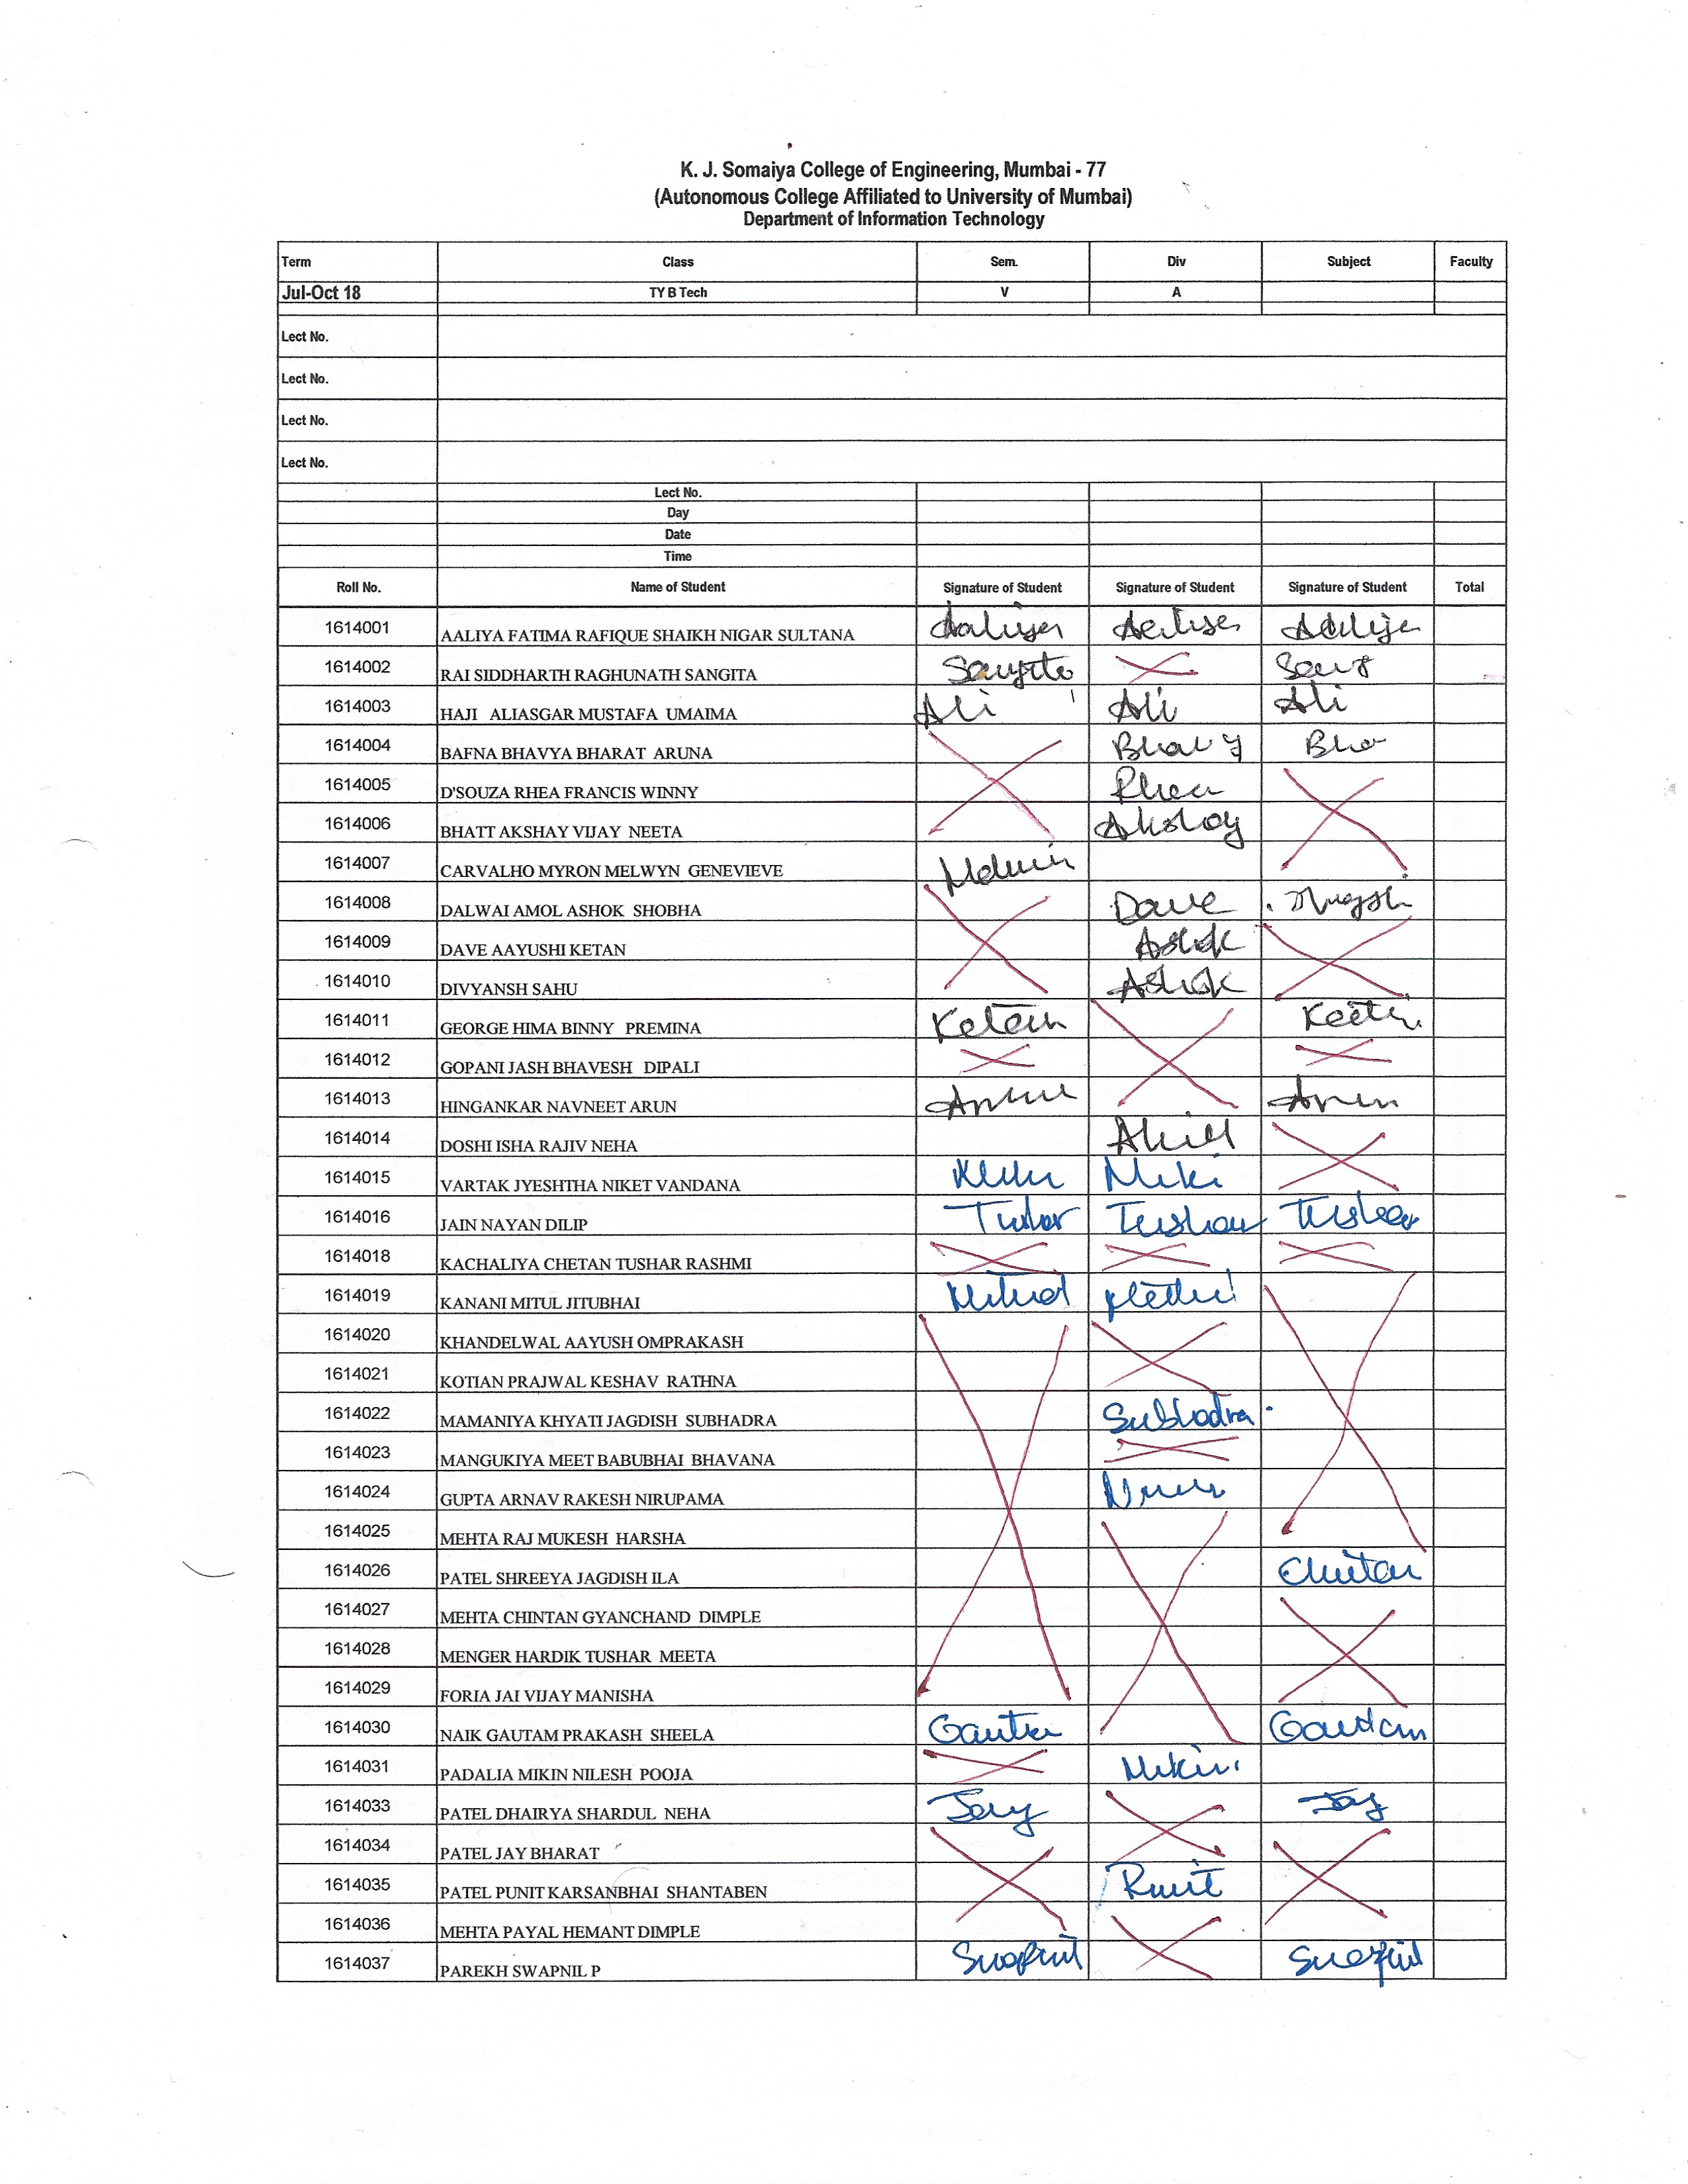 K. J. Somaiya College of Engineering, Mumbai - 77
(Autonomous College Affiliated to University of Mumbai)
Department of Information Technology
Term Class Sem. Div Subject Faculty
Jul-Oct 18 TY B Tech V A
Lect No.
Lect No.
Lect No.
Lect No.
Lect No.
Day
Date
Time
Roll No. Name of Student Signature of Student Signature of Student Signature of Student Total
1614001 AALIYA FATIMA RAFIQUE SHAIKH NIGAR SULTANA Aaliya
1614002 RAI SIDDHARTH RAGHUNATH SANGITA
1614003 HAJI ALIASGAR MUSTAFA UMAIMA Ali Ali Ali
1614004 BAFNA BHAVYA BHARAT ARUNA Bhavy Bha
1614005 D'SOUZA RHEA FRANCIS WINNY Rhea
1614006 BHATT AKSHAY VIJAY NEETA Akshay
1614007 CARVALHO MYRON MELWYN GENEVIEVE
1614008 DALWAI AMOL ASHOK SHOBHA Dave
1614009 DAVE AAYUSHI KETAN Ashok
1614010 DIVYANSH SAHU Ashok
1614011 GEORGE HIMA BINNY PREMINA Ketan
1614012 GOPANI JASH BHAVESH DIPALI
1614013 HINGANKAR NAVNEET ARUN
1614014 DOSHI ISHA RAJIV NEHA
1614015 VARTAK JYESHTHA NIKET VANDANA Niki
1614016 JAIN NAYAN DILIP Tushar Tushar
1614018 KACHALIYA CHETAN TUSHAR RASHMI
1614019 KANANI MITUL JITUBHAI Mitul
1614020 KHANDELWAL AAYUSH OMPRAKASH
1614021 KOTIAN PRAJWAL KESHAV RATHNA
1614022 MAMANIYA KHYATI JAGDISH SUBHADRA Subhadra
1614023 MANGUKIYA MEET BABUBHAI BHAVANA
1614024 GUPTA ARNAV RAKESH NIRUPAMA
1614025 MEHTA RAJ MUKESH HARSHA
1614026 PATEL SHREEYA JAGDISH ILA Chintan
1614027 MEHTA CHINTAN GYANCHAND DIMPLE
1614028 MENGER HARDIK TUSHAR MEETA
1614029 FORIA JAI VIJAY MANISHA
1614030 NAIK GAUTAM PRAKASH SHEELA Gautam
1614031 PADALIA MIKIN NILESH POOJA Mikin
1614033 PATEL DHAIRYA SHARDUL NEHA Jay Jay
1614034 PATEL JAY BHARAT
1614035 PATEL PUNIT KARSANBHAI SHANTABEN Punit
1614036 MEHTA PAYAL HEMANT DIMPLE
1614037 PAREKH SWAPNIL P Swapnil Swapnil